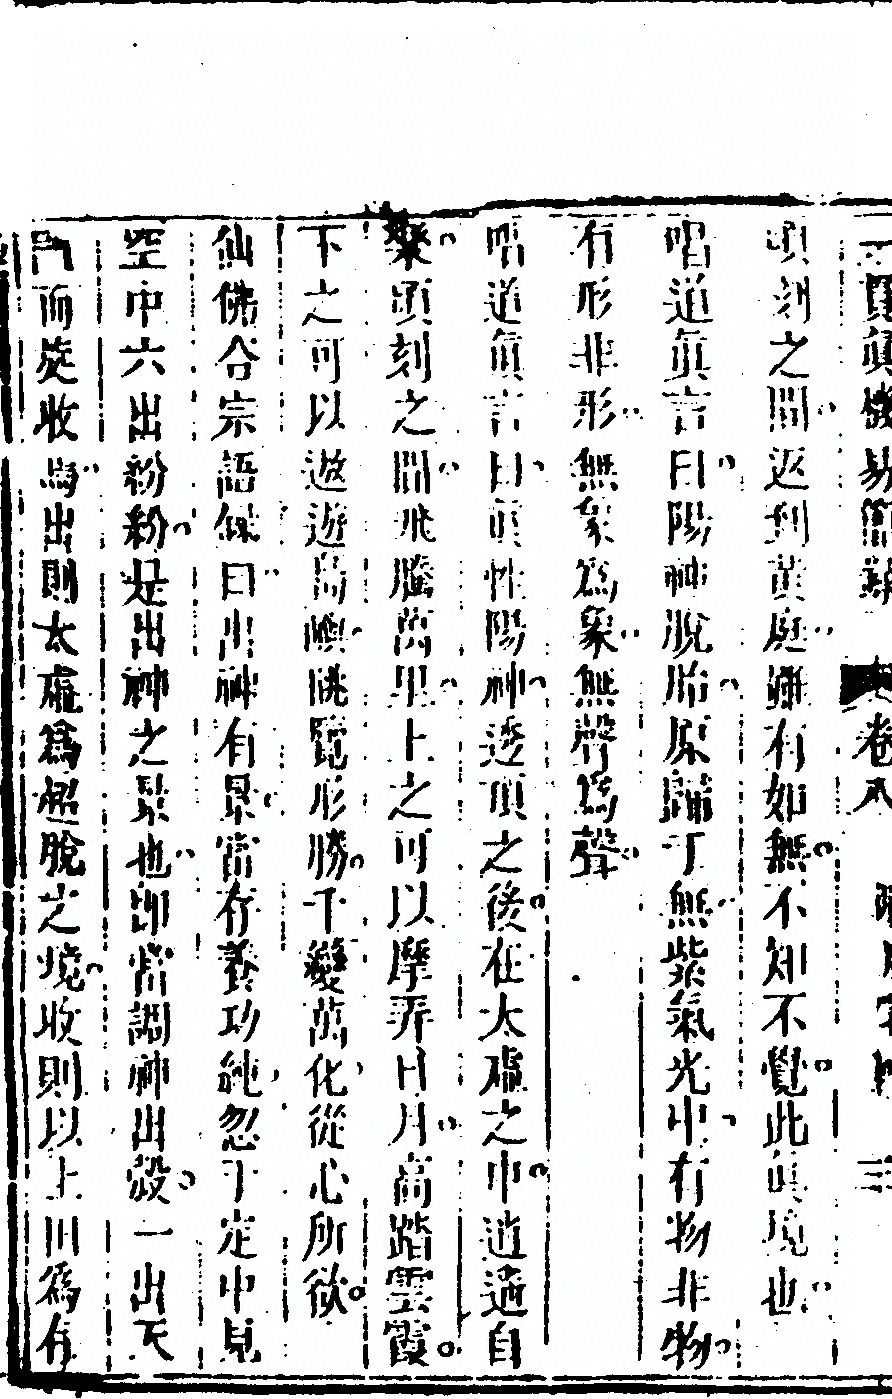 一貫眞機易簡錄 卷八 三
頃刻之間返到黃庭雖有如無不知不覺此眞境也
唱道眞言曰陽神脫胎原歸于無紫氣光中有物非物
有形非形無象爲象無聲爲聲
唱道眞言曰眞性陽神透頂之後在太虛之中逍遙自
樂頃刻之間飛騰萬里上之可以摩弄日月高踏雲霞
下之可以遨遊島嶼眺覽形勝千變萬化從心所欲
仙佛合宗語錄曰出神有景當存養功純忽于定中見
空中六出紛紛是出神之景也卽當調神出殼一出天
門而旋收焉出則太虛爲超脫之境收則以上田爲存